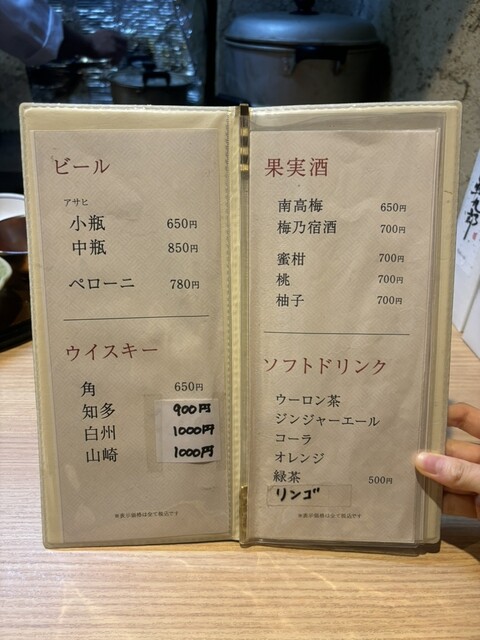 ビール
アサヒ
小瓶 650円
中瓶 850円
ペローニ 780円
ウイスキー
角 650円
知多 900円
白州 1000円
山崎 1000円
※表示価格は全て税込です
果実酒
南高梅 650円
梅乃宿酒 700円
蜜柑 700円
桃 700円
柚子 700円
ソフトドリンク
ウーロン茶
ジンジャーエール
コーラ
オレンジ
緑茶 500円
リンゴ
※表示価格は全て税込です